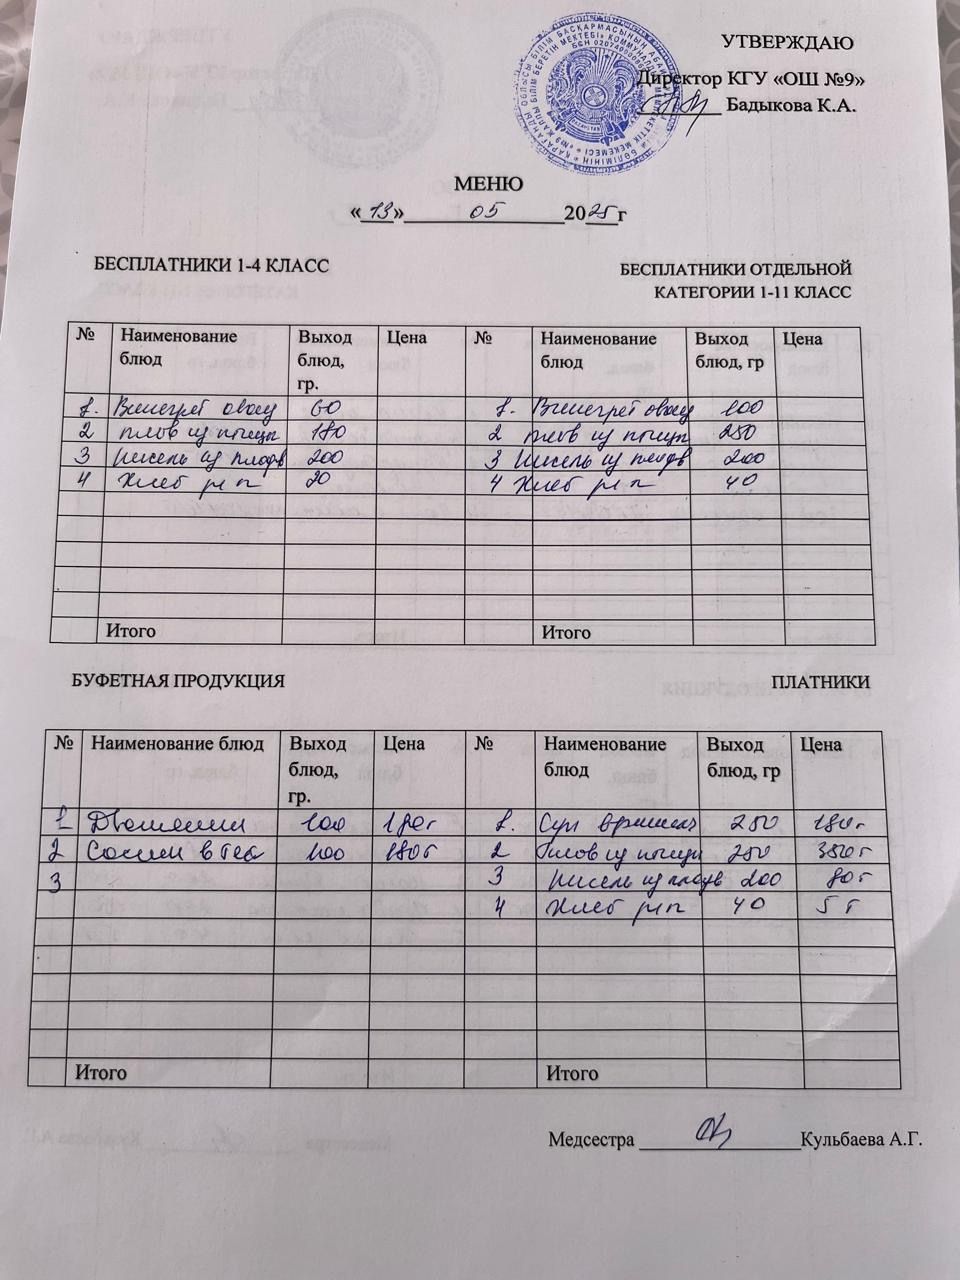 УТВЕРЖДАЮ
Директор КГУ «ОШ №9»
Бадыкова К.А.
МЕНЮ
«13» 05 2025г
БЕСПЛАТНИКИ 1-4 КЛАСС
БЕСПЛАТНИКИ ОТДЕЛЬНОЙ
КАТЕГОРИИ 1-11 КЛАСС
№ Наименование блюд Выход блюд, гр. Цена № Наименование блюд Выход блюд, гр Цена
1. Винегрет овощ 60 1. Винегрет овощ 100
2 плов из птицы 180 2 плов из птицы 250
3 Кисель из плодов 200 3 Кисель из плодов 200
4 Хлеб рж п 20 4 Хлеб рж п 40
Итого Итого
БУФЕТНАЯ ПРОДУКЦИЯ
ПЛАТНИКИ
№ Наименование блюд Выход блюд, гр. Цена № Наименование блюд Выход блюд, гр Цена
1 100 180т 1. Суп вермишель 250 180т
2 Сосиски в тес 100 180т 2 Плов из птицы 250 350т
3 3 Кисель из плодов 200 80т
4 Хлеб рж п 40 5т
Итого Итого
Медсестра Кульбаева А.Г.